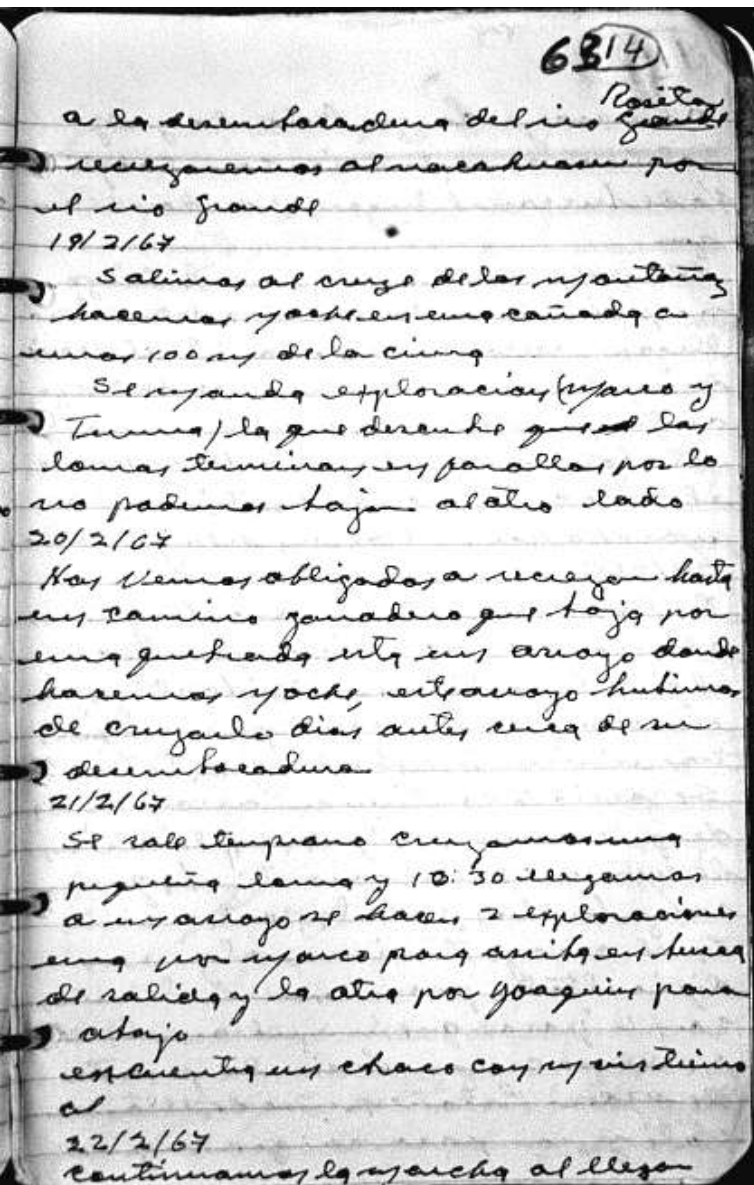 63 14
Rosita
a la desembocadura del rio Grande
regresaremos al nacahuasu por
el rio Grande
19/2/67
Salimos al cruze de las montañas
hacemos noche en una cañada a
unos 100 m de la cima
Se manda exploracion (Marco y
Tuma) la que descubre que las
lomas terminan en farallas por lo
no podemos bajar al otro lado
20/2/67
Nos vemos obligados a regresar hasta
un camino ganadero que baja por
una quebrada esta un arroyo donde
hacemos noche, este arroyo hubimos
de cruzarlo dias antes cerca de su
desembocadura
21/2/67
Se sale temprano cruzamos una
pequeña loma y 10:30 llegamos
a un arroyo se hacen 2 exploraciones
una por Marco para arriba en busca
de salida y la otra por Joaquin para
abajo
encuentra un chaco con
al
22/2/67
continuamos la marcha al llegar